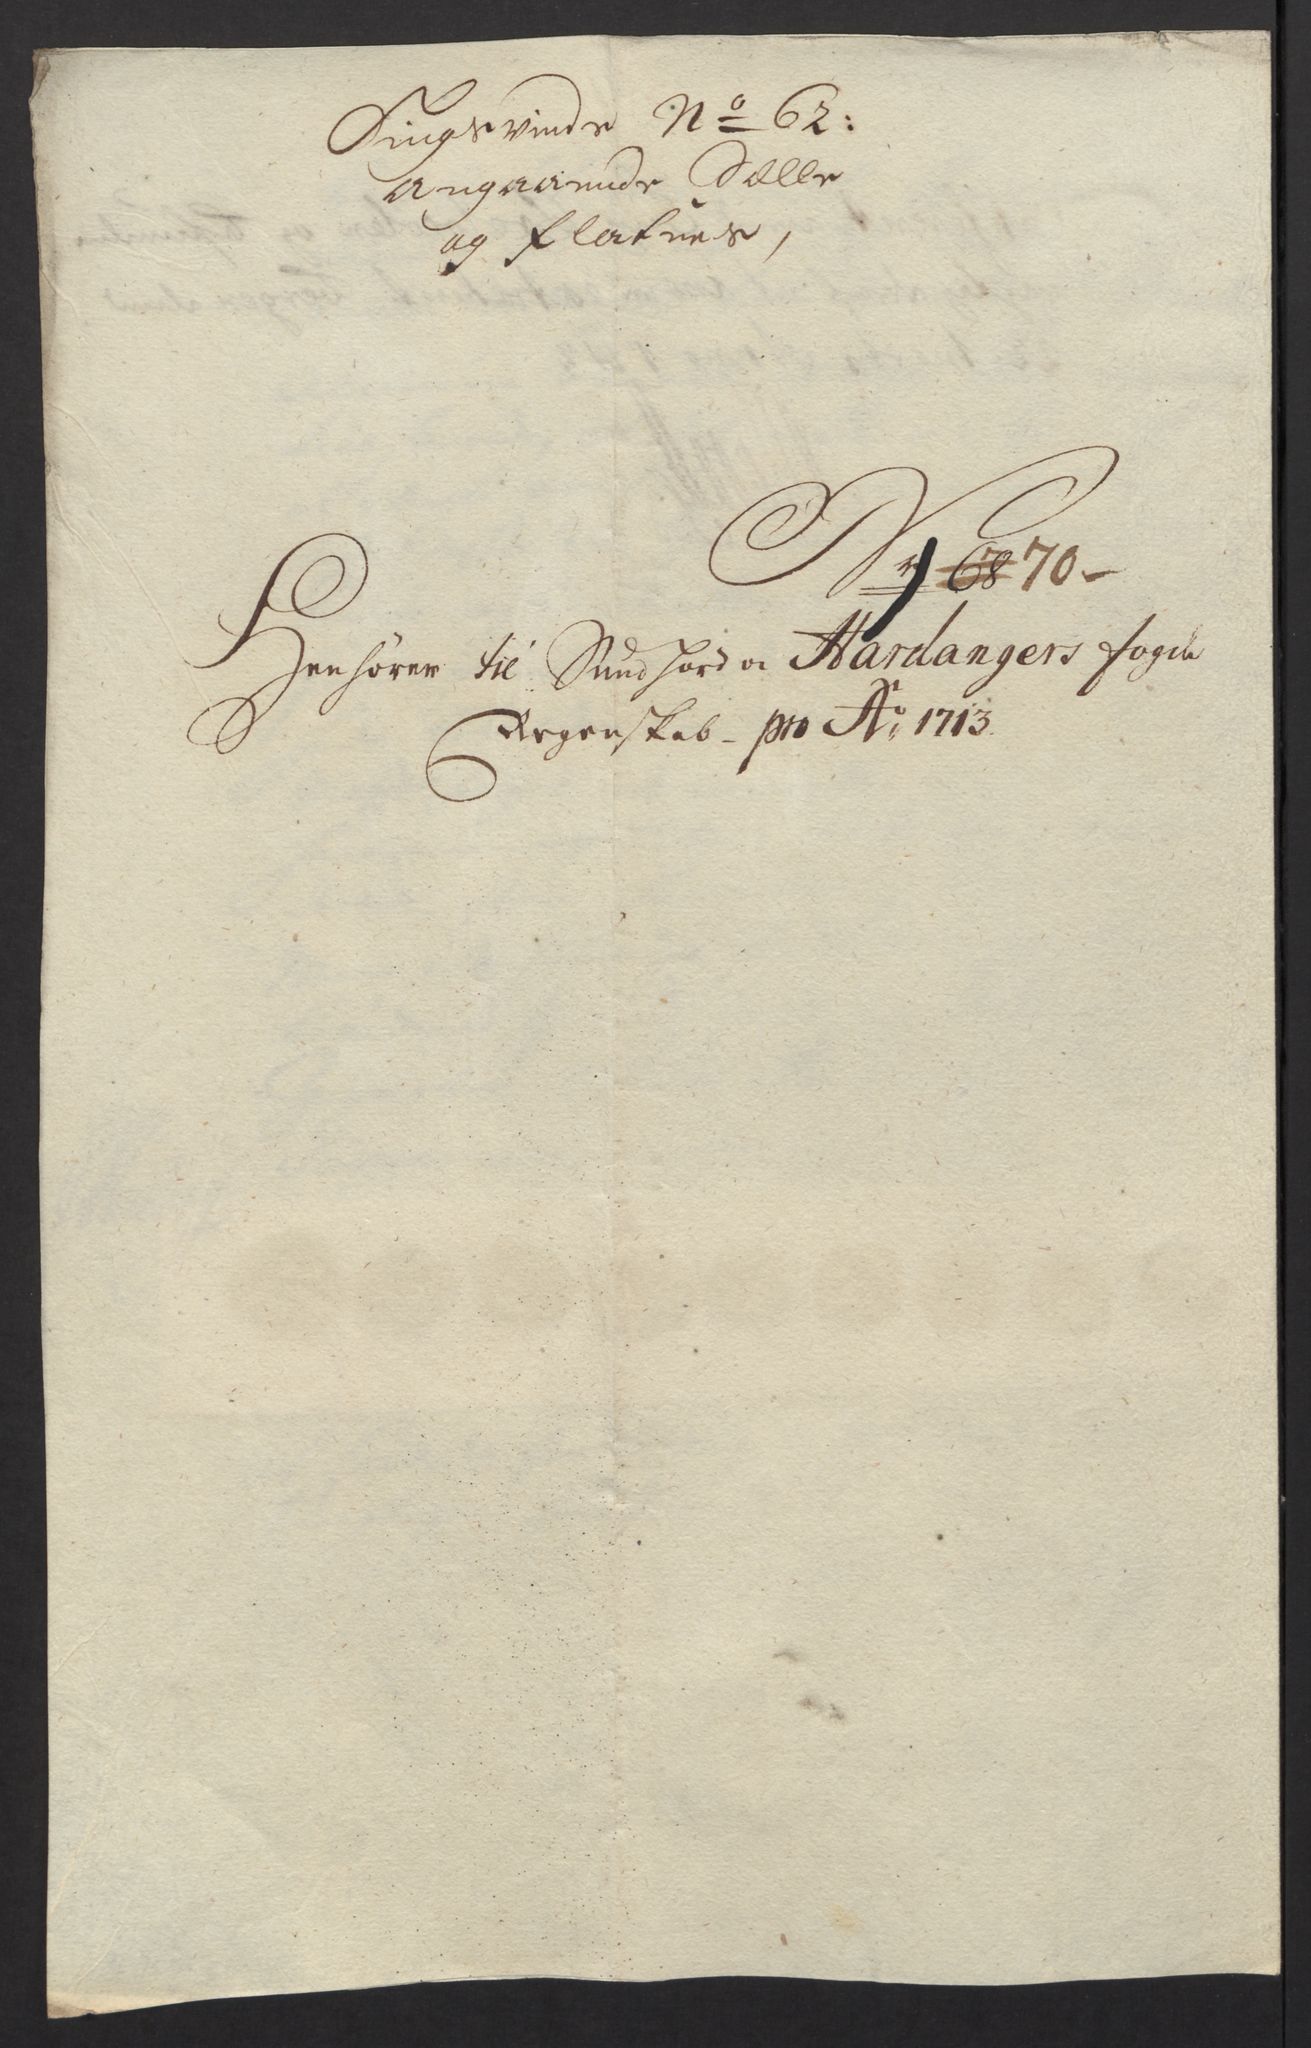 Tingsvinde No 62:
angaaende Sælle
og Flatnes,
Nr 68 70 -
Henhører til Sundhord og Hardangers fogde
Regenskab - pro Ao 1713